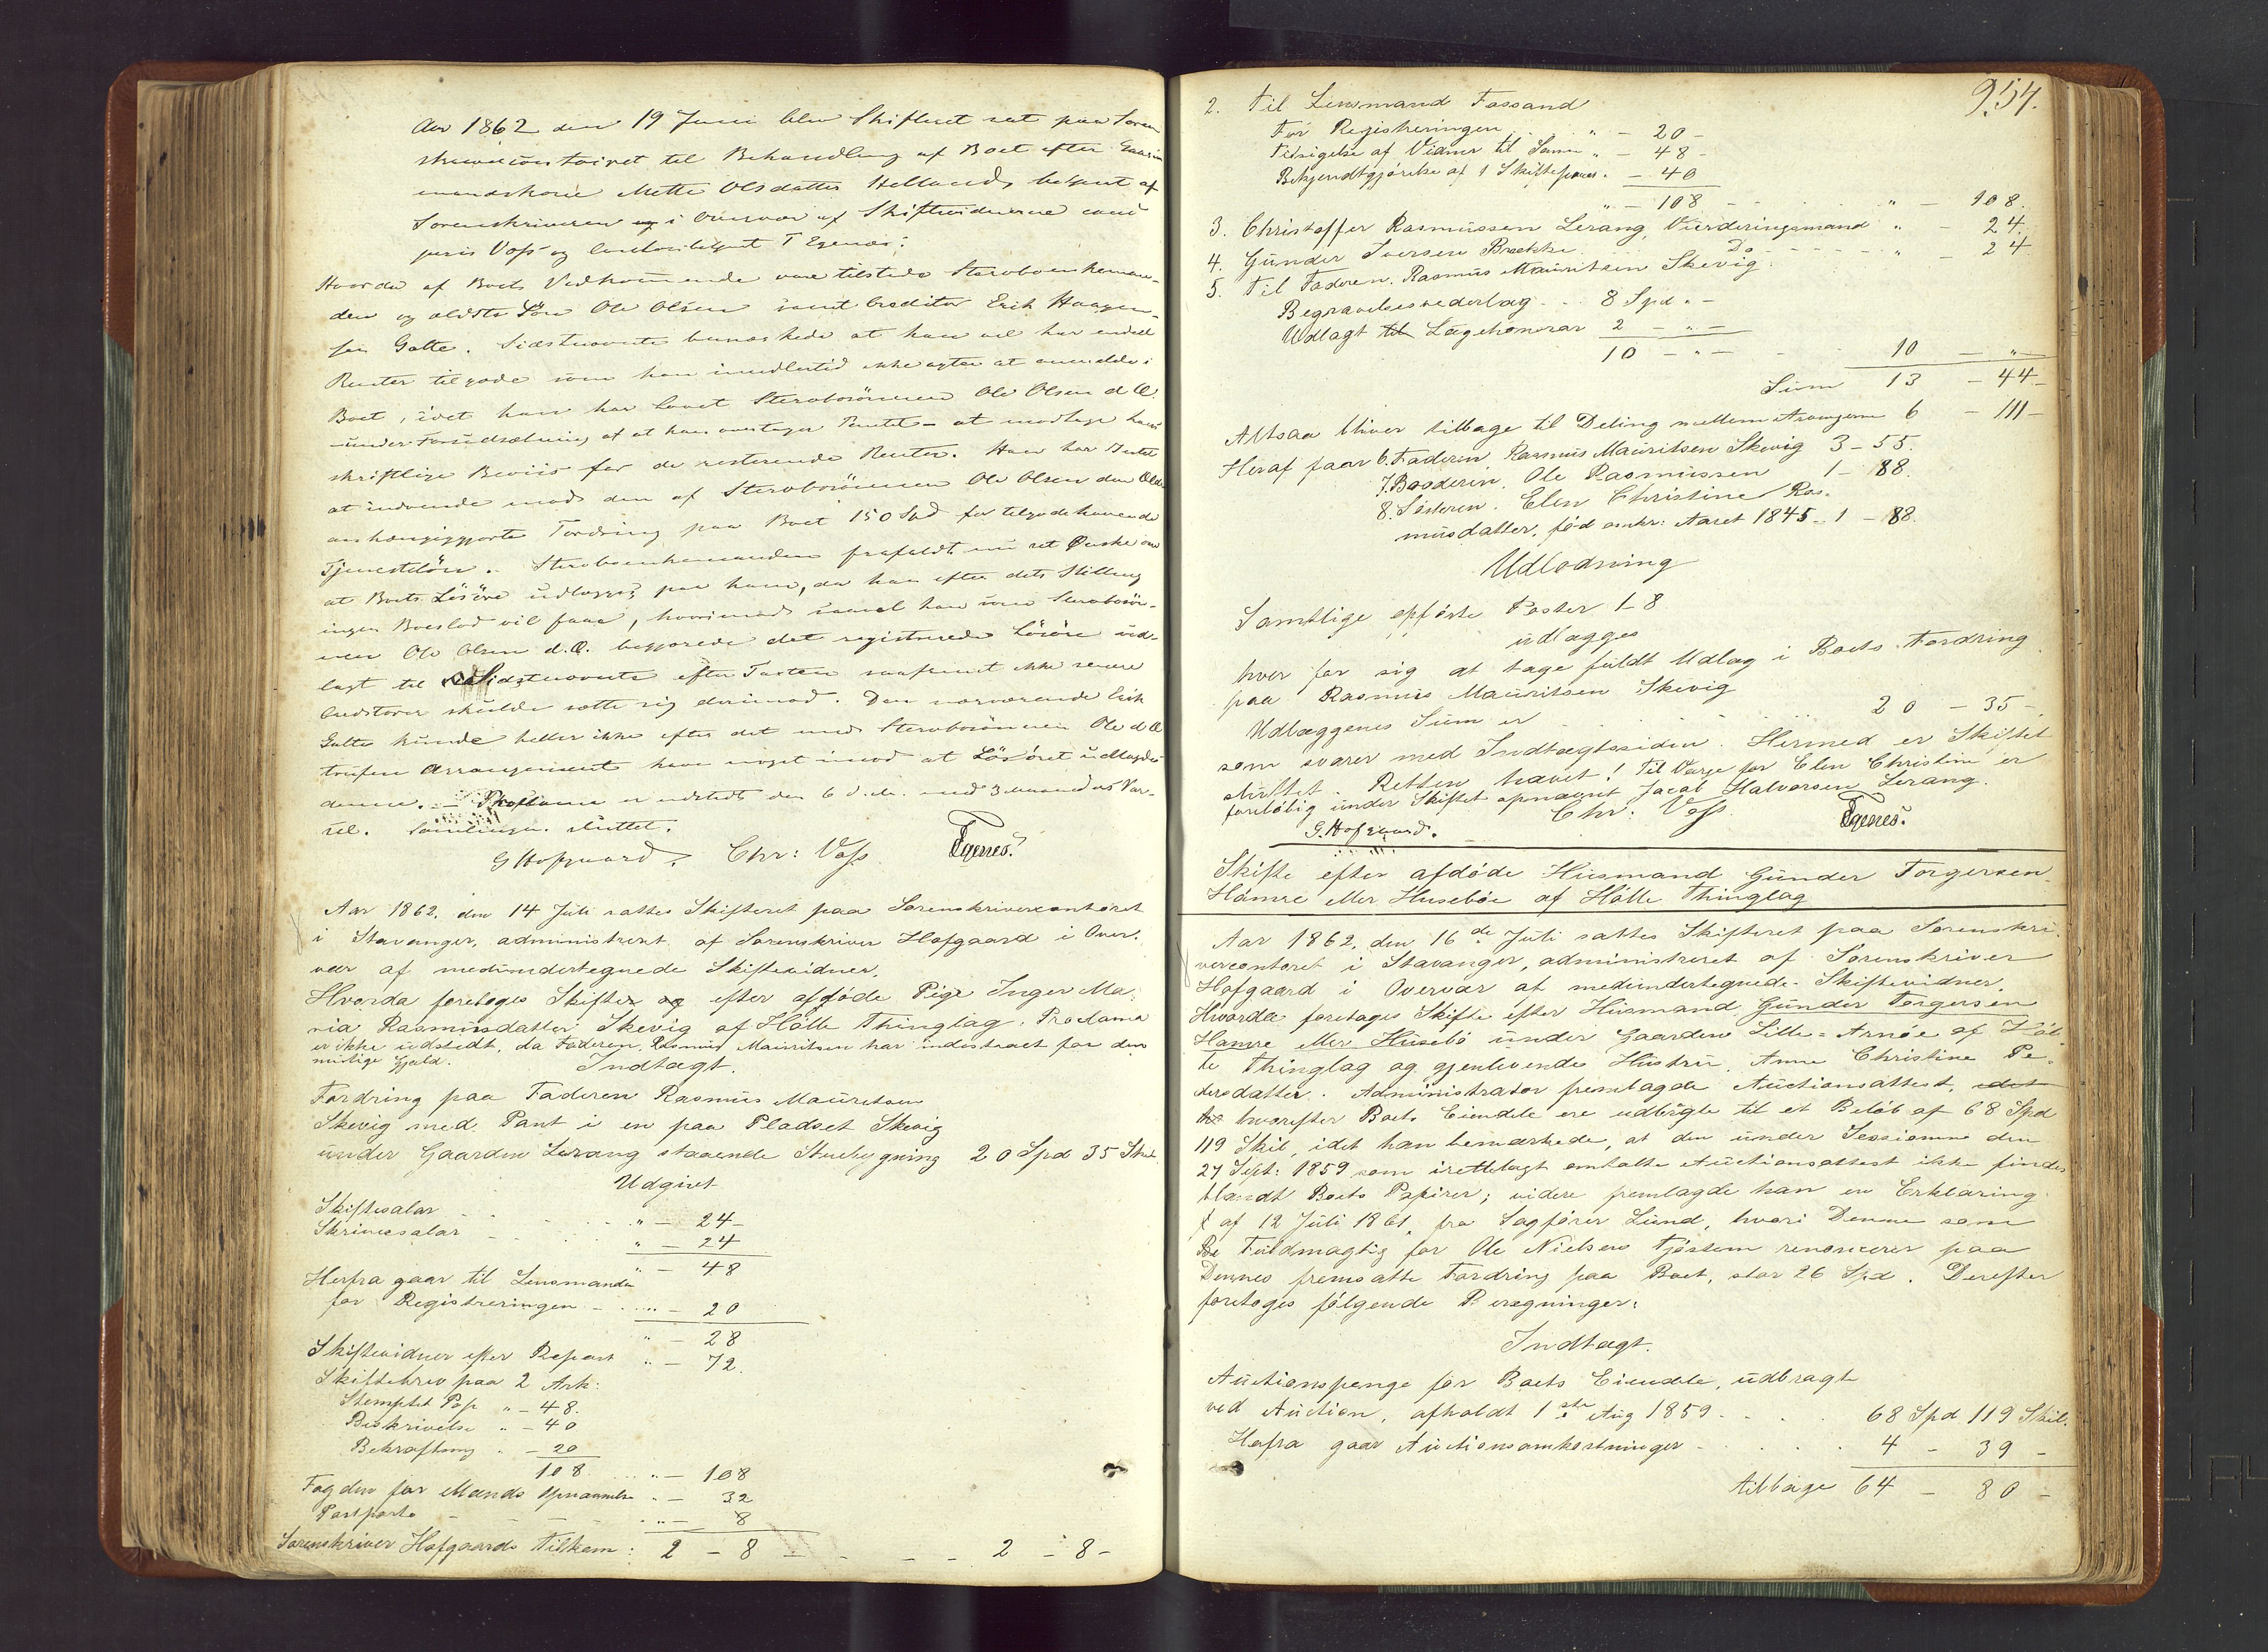 Aar 1862 den 19 Juni blev Skifteret sat paa Soren
skrivercontoiret til Behandling af Boet efter Gaard
mandskone Mette Olsdatter Helland, betjent af
Sorenskriveren og i Overvær af Skiftevidnerne cand
juris Voss og Contorbetjent T Egenæs:
Hvorda af Boets Vedkommende vare tilstede Stervboenkeman-
den og ældste Søn Ole Olsen samt Creditor Erik Haagen-
sen Galte. Sidstnævnte bemærkede at han vel har endeel
Renter tilgode som han imidlertid ikke agter at anmelde i
Boet, idet han har lovet Stervbosönnen Ole Olsen d Æ.
under Forudsætning af at han overtager Pantet - at modtage hans
skriftlige Beviis for de resterende Renter. Han har Intet
at indvende mod den af Stervbosönnen Ole Olsen den Ældre
anhængiggjorte Fordring paa Boet 150 Spd for tilgodehavende
Tjenestelön. Stervboenkemanden frafaldt nu sit Ønske om
at Boets Lösöre udlægges paa ham, da han efter dets Stilling
ingen Boeslod vil faae, hvorimod saavel han som Stervbosön-
nen Ole Olsen d.Æ. begjærede det registrerede Lösöre ud-
lagt til Sidstnævnte efter Taxten saafremt ikke senere
Creditorer skulde sætte sig derimod. Den nærværende Erik
Galte kunde heller ikke efter det med Stervbosönnen Ole d Æ
trufne Arrangement have noget imod at Lösöret udlagdes
denne. - Proclama er udstedt den 6 d.M. med 3 Maaneders Var-
sel. Samlingen sluttet.
G Hofgaard. Chr: Voss. Egenes.
Aar 1862, den 14 Juli sattes Skifteret paa Sorenskrivercontoret
i Stavanger, administreret af Sorenskriver Hofgaard i Over-
vær af medundertegnede Skiftevidner.
Hvorda foretoges Skifte efter afdöde Pige Inger Ma-
ria Rasmusdatter Skevig af Hölle Thinglag. Proclama
er ikke udstedt, da Faderen, Rasmus Mauritsen har indestaaet for den
mulige Gjæld.
Indtægt.
Fordring paa Faderen Rasmus Mauritsen
Skevig med Pant i en paa Pladset Skevig
under Gaarden Lerang staaende Stuebygning 20 Spd 35 Skil.
Udgivt
Skiftesalær " - 24 -
Skriversalær " - 24
" - 48
Herfra gaar til Lensmanden
for Registreringen - " - 20
" - 28
Skiftevidner efter Repart " - 72.
Skiftebrev paa 2 Ark:
Stemplet Pap " - 48.
Beskrivelse " - 40
Bekræftning " - 20
108 " - 108
Fogden for Mænds Opnævnelse " - 32
Postporto " - 8
Sorenskriver Hofgaards Tilkom: 2 - 8 - 2 - 8 -
954.
2. Til Lensmand Fossand
For Registreringen " - 20 -
Tilsigelse af Vidner til Samme " - 48 -
Bekjendtgjörelse af 1 Skiftesam. " - 40
" - 108 - " - 108.
3. Christoffer Rasmussen Lerang, Vurderingsmand " - 24.
4. Gunder Iversen Brække Do " - 24
5. Til Faderen, Rasmus Mauritsen Skevig
Begravelsesvederlag 8 Spd " -
Udlagt til Lægehonorar 2 - " -
10 - " - 10 - "
Sum 13 - 44 -
Altsaa bliver tilbage til Deling mellem Arvingerne 6 - 111 -
Heraf faar 6. Faderen Rasmus Mauritsen Skevig 3 - 55.
7. Broderen, Ole Rasmussen 1 - 88.
8. Sösteren, Elen Christine Ras-
musdatter, föd omkr: Aaret 1845 - 1 - 88.
Udlodning
Samtlige opförte Poster 1-8
udlægges
hver for sig at tage fuldt Udlæg i Boets Fordring
paa Rasmus Mauritsen Skevig
Udlæggenes Sum er 20 - 35 -
som svarer med Indtægtssiden. Hermed er Skiftet
sluttet. Retten hævet! Til Værge for Elen Christine er
foreløbig under Skiftet opnævnt Jacob Halvorsen Lerang.
G. Hofgaard. Chr: Voss. Egenes.
Skifte efter afdöde Husmand Gunder Torgersen
Hamre eller Huseböe af Hölle Thinglag
Aar 1862, den 16de Juli sattes Skifteret paa Sorenskri-
vercontoret i Stavanger, administreret af Sorenskriver
Hofgaard i Overvær af medundertegnede Skiftevidner.
Hvorda foretoges Skifte efter Husmand Gunder Torgersen
Hamre eller Husebö under Gaarden Lille-Arnöe af Höl-
le Thinglag og gjenlevende Hustru, Anne Christine Pe-
dersdatter. Administrator fremlagde Auctionsattest, idet
hvorefter Boets Eiendele ere udbragte til et Belöb af 68 Spd
119 Skil, idet han bemærkede, at den under Sessionen den
27 Sept: 1859 som irettelagt omtalte Auctionsattest ikke findes
blandt Boets Papirer; videre fremlagde han en Erklæring
af 12 Juli 1861, fra Sagförer Lund, hvori Denne som
Fuldmægtig for Ole Nielsen Tjöstem renoncerer paa
Dennes fremsatte Fordring paa Boet, stor 26 Spd. Derefter
foretoges fölgende Beregninger:
Indtægt.
Auctionspenge for Boets Eiendele, udbragt
ved Auction, afholdt 1ste Aug 1859 68 Spd 119 Skil.
Herfra gaar Auctionsomkostninger 4 - 39 -
tilbage 64 - 80 -